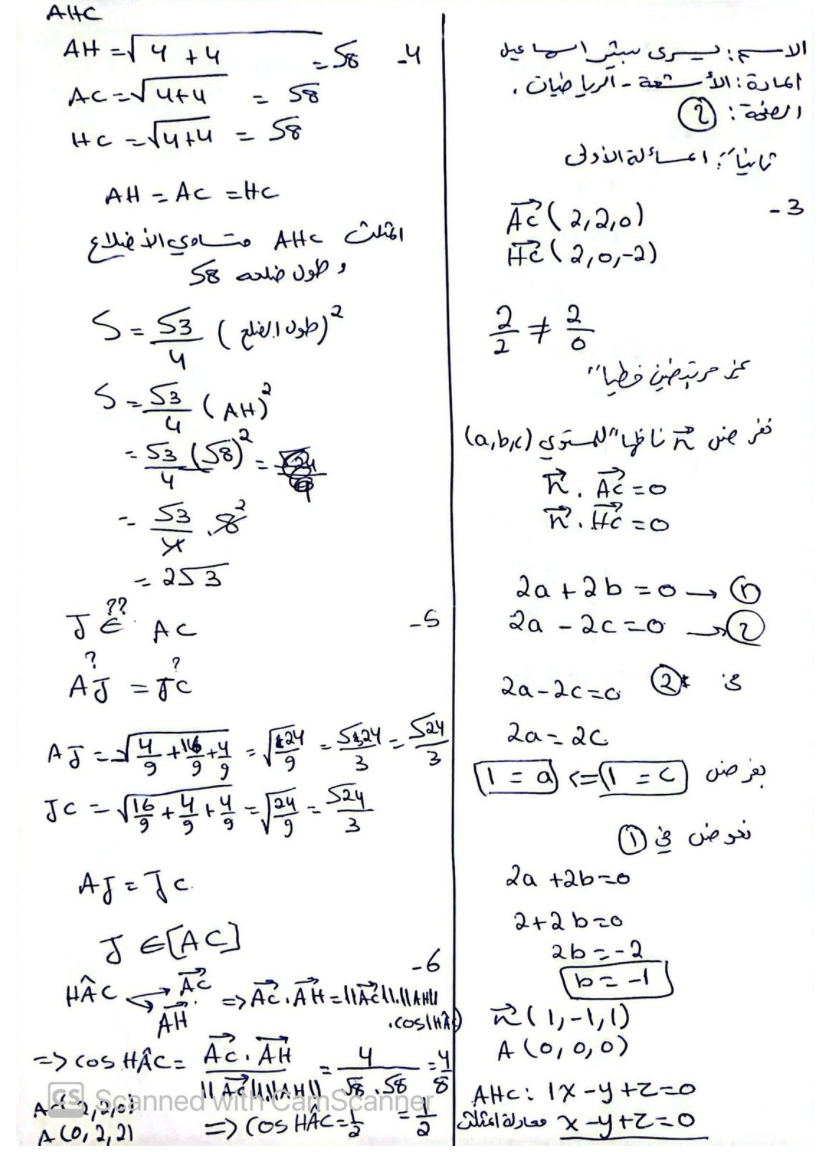 الاسم: يسرى سبتي اسماعيل
المادة: الأشعة - الرياضيات.
الصفحة: ②
ثانياً: المسألة الأولى
-3
AC⃗ (2,2,0)
HC⃗ (2,0,-2)
2/2 ≠ 2/0
غير مرتبطين خطياً
نفرض n⃗ ناظماً للمستوي (a,b,c)
n⃗ . AC⃗ = 0
n⃗ . HC⃗ = 0
2a + 2b = 0 → ①
2a - 2c = 0 → ②
في ②*
2a - 2c = 0
2a = 2c
بفرض 1 = c => 1 = a
نعوض في ①
2a + 2b = 0
2 + 2b = 0
2b = -2
b = -1
n⃗ (1, -1, 1)
A (0, 0, 0)
AHC : 1x - y + z = 0
معادلة المثلث x - y + z = 0
AHC
-4
AH = √4 + 4 = √8
AC = √4+4 = √8
HC = √4+4 = √8
AH = AC = HC
المثلث AHC متساوي الأضلاع
و طول ضلعه √8
S = √3/4 (طول الضلع)²
S = √3/4 (AH)²
= √3/4 (√8)² =
= √3/4 . 8²
= 2√3
-5
J ∈?? AC
AJ =? JC?
AJ = √4/9 + 16/9 + 4/9 = √24/9 = √24/3 = √24/3
JC = √16/9 + 4/9 + 4/9 = √24/9 = √24/3
AJ = JC
J ∈ [AC]
-6
HÂC AC⃗ AH⃗ => AC⃗ . AH⃗ = ||AC⃗||.||AH||
.cos(HÂC)
=> cos HÂC = AC⃗ . AH⃗ / ||AC⃗||.||AH|| = 4/√8 . √8 = 4/8
A(0,2,2)
=> cos HÂC = 1/2 = 1/2
CS Scanned with CamScanner